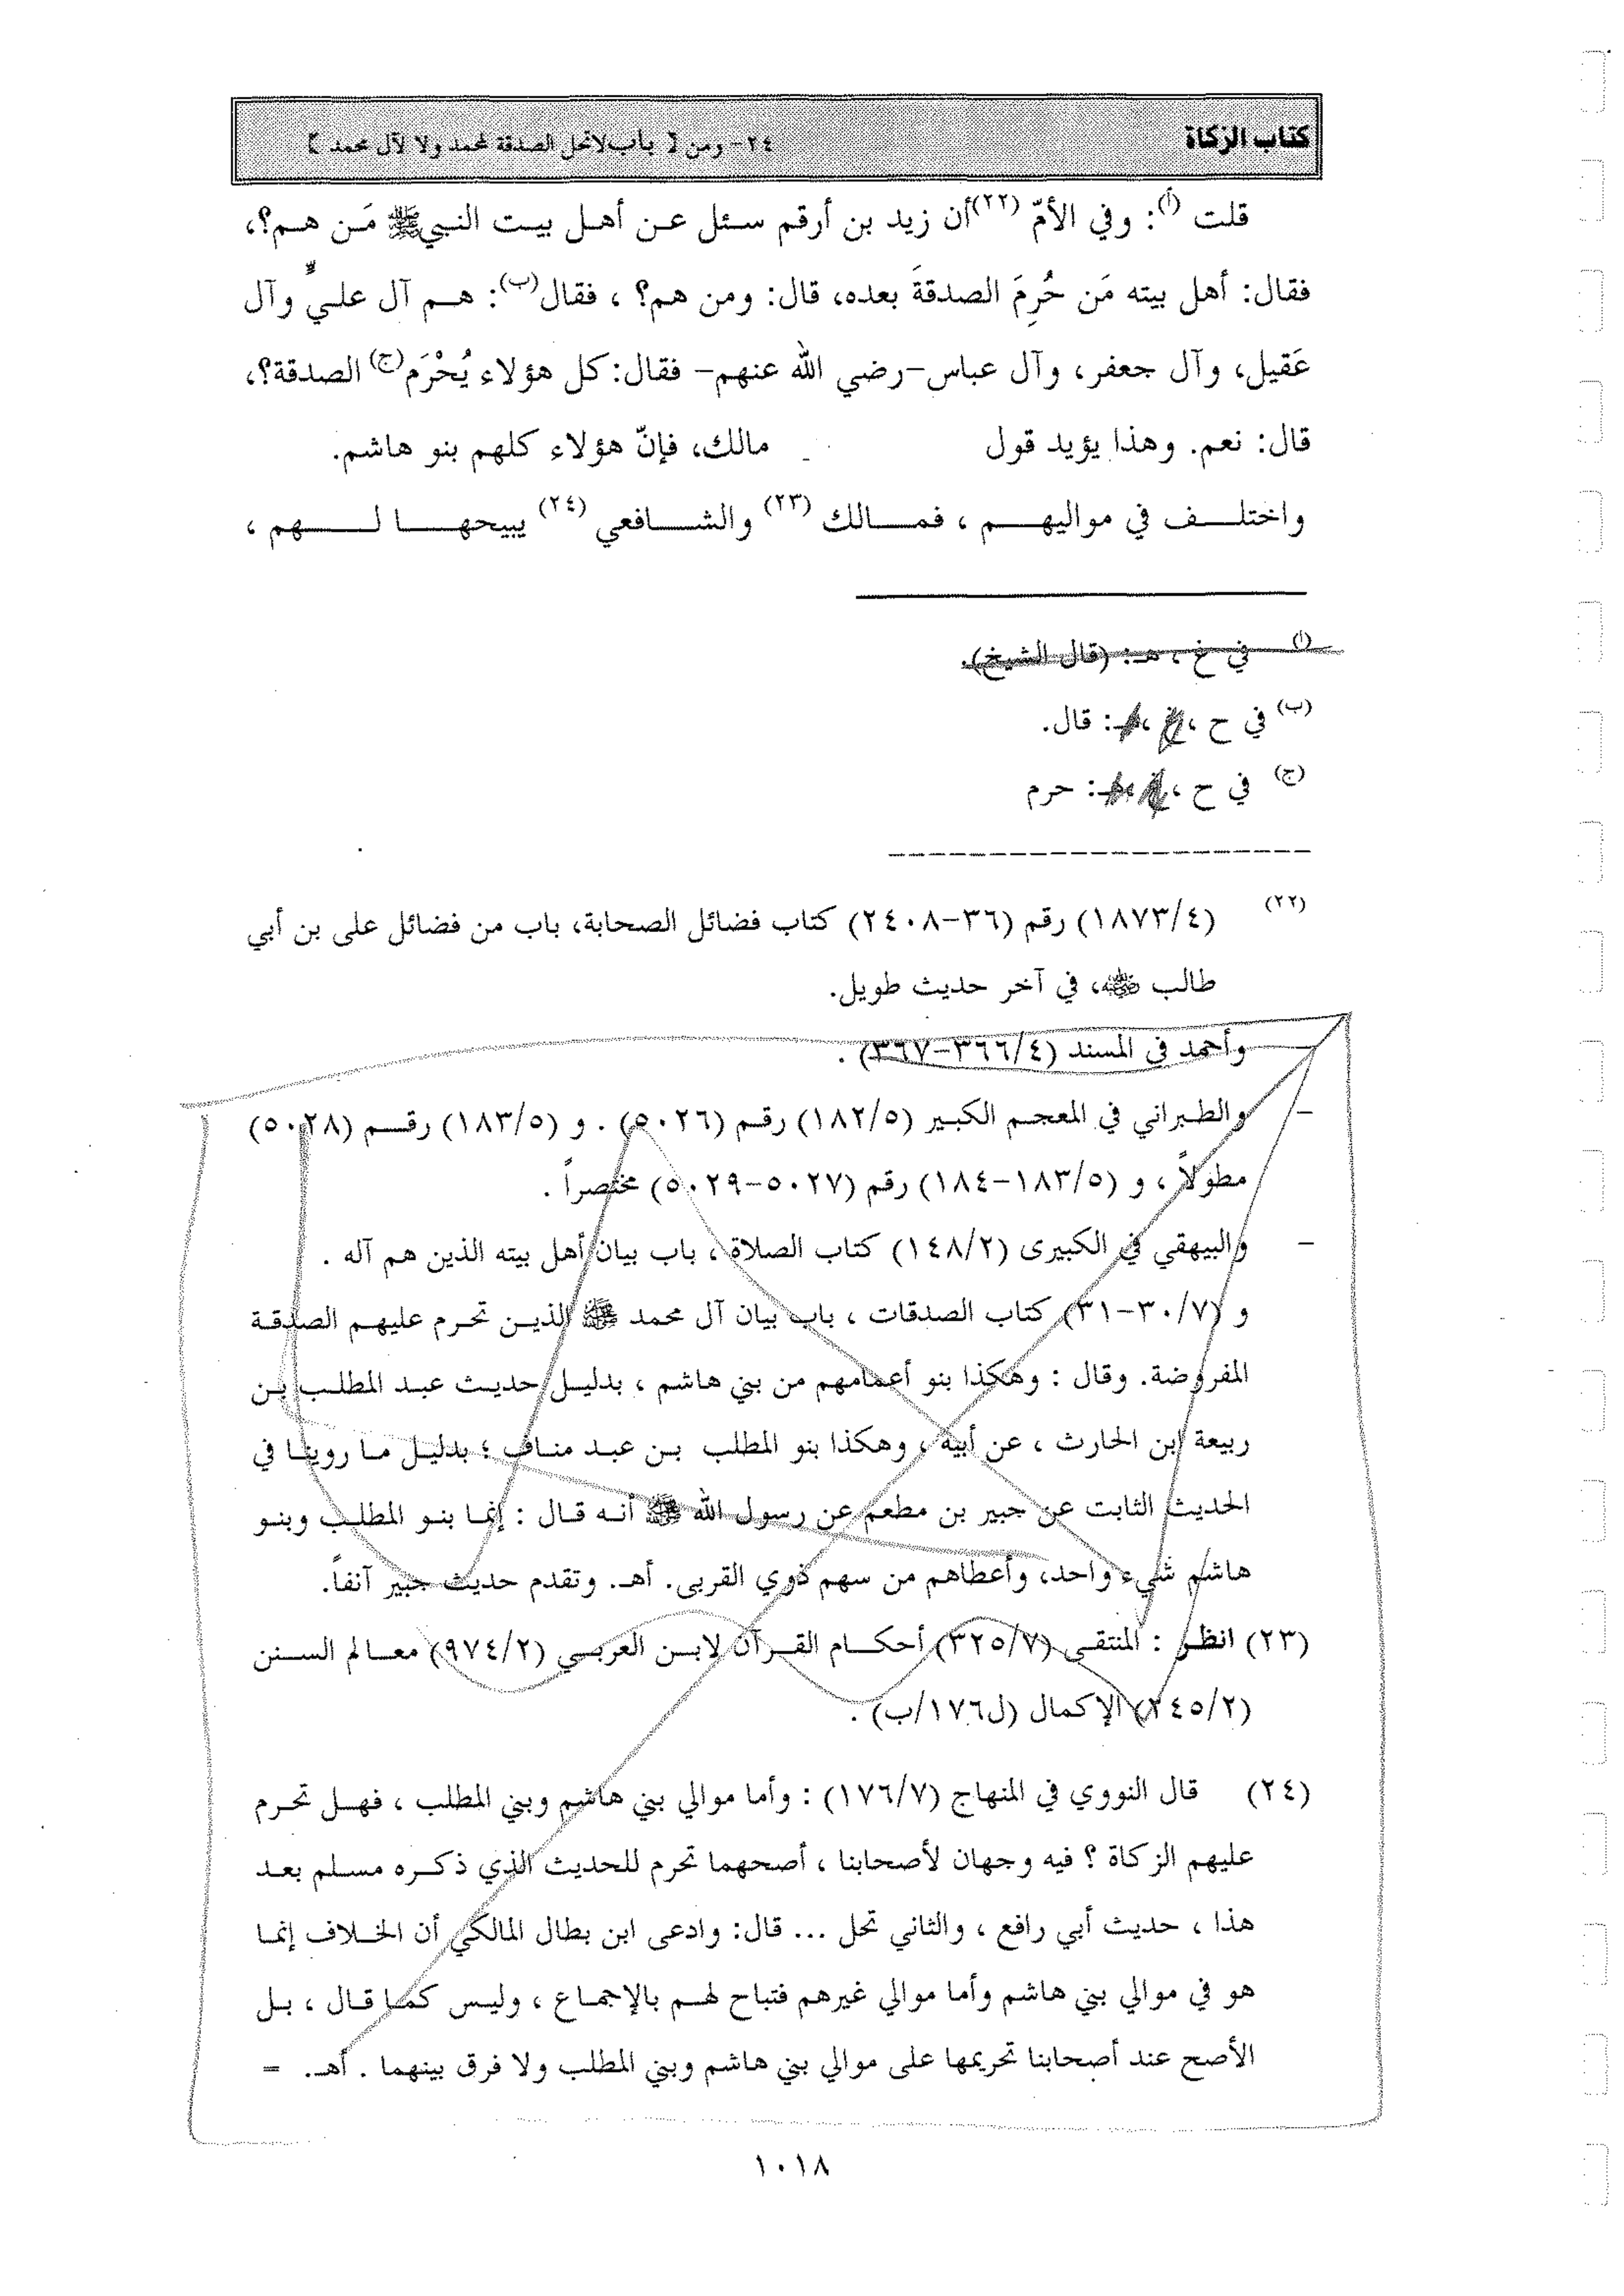 كتاب الزكاة
٢٤- ومن [ باب لاتحل الصدقة لمحمد ولا لآل محمد ]
قلت (أ): وفي الأمّ (٢٢) أن زيد بن أرقم سئل عن أهل بيت النبي ﷺ مَن هم؟،
فقال: أهل بيته مَن حُرِمَ الصدقةَ بعده، قال: ومن هم؟ ، فقال(ب): هم آل عليٍّ وآل
عَقيل، وآل جعفر، وآل عباس-رضي الله عنهم- فقال: كل هؤلاء يُحْرَم(ج) الصدقة؟،
قال: نعم. وهذا يؤيد قول مالك، فإنّ هؤلاء كلهم بنو هاشم.
واختلف في مواليهم ، فمالك (٢٣) والشافعي (٢٤) يبيحها لهم ،
(أ) في غ ، هـ: (قال الشيخ).
(ب) في ح ، غ ، هـ: قال.
(ج) في ح ، غ ، هـ: حرم
(٢٢) (١٨٧٣/٤) رقم (٣٦-٢٤٠٨) كتاب فضائل الصحابة، باب من فضائل على بن أبي
طالب ﷺ، في آخر حديث طويل.
- وأحمد في المسند (٣٦٦/٤-٣٦٧) .
- والطبراني في المعجم الكبير (١٨٢/٥) رقم (٥٠٢٦) . و (١٨٣/٥) رقم (٥٠٢٨)
مطولاً ، و (١٨٣/٥-١٨٤) رقم (٥٠٢٧-٥٠٢٩) مختصراً .
- والبيهقي في الكبيرى (١٤٨/٢) كتاب الصلاة ، باب بيان أهل بيته الذين هم آله .
و (٣٠/٧-٣١) كتاب الصدقات ، باب بيان آل محمد ﷺ الذين تحرم عليهم الصدقة
المفروضة. وقال : وهكذا بنو أعمامهم من بني هاشم ، بدليل حديث عبد المطلب بن
ربيعة ابن الحارث ، عن أبيه ، وهكذا بنو المطلب بن عبد مناف ؛ بدليل ما روينا في
الحديث الثابت عن جبير بن مطعم عن رسول الله ﷺ أنه قال : إنما بنو المطلب وبنو
هاشم شيء واحد، وأعطاهم من سهم ذوي القربى. أهـ. وتقدم حديث جبير آنفاً.
(٢٣) انظر : المنتقى (٣٢٥/٧) أحكام القرآن لابن العربي (٩٧٤/٢) معالم السنن
(٢٤٥/٢) الإكمال (ل١٧٦/ب) .
(٢٤) قال النووي في المنهاج (١٧٦/٧) : وأما موالي بني هاشم وبني المطلب ، فهل تحرم
عليهم الزكاة ؟ فيه وجهان لأصحابنا ، أصحهما تحرم للحديث الذي ذكره مسلم بعد
هذا ، حديث أبي رافع ، والثاني تحل ... قال: وادعى ابن بطال المالكي أن الخلاف إنما
هو في موالي بني هاشم وأما موالي غيرهم فتباح لهم بالإجماع ، وليس كما قال ، بل
الأصح عند أصحابنا تحريمها على موالي بني هاشم وبني المطلب ولا فرق بينهما . أهـ. =
١٠١٨